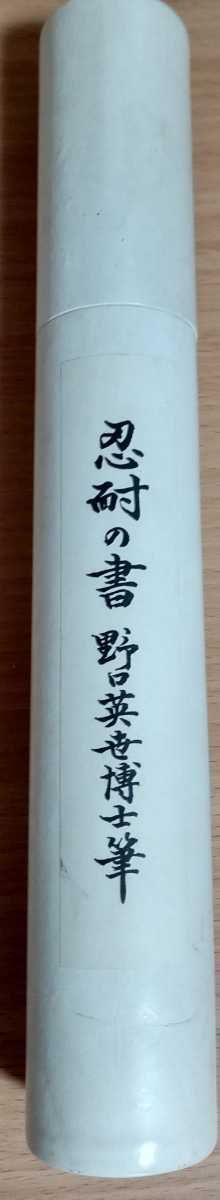 忍耐の書 野口英世博士筆